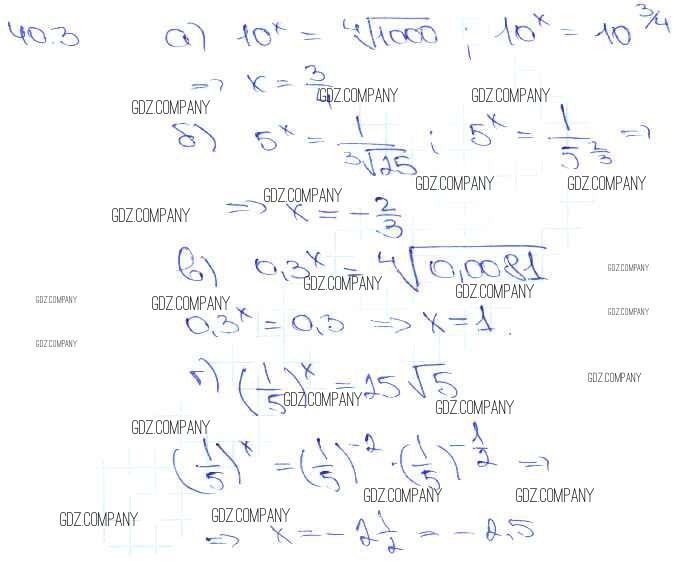 40.3 а) 10^x = ⁴√1000 ; 10^x = 10^3/4
=> x = 3/4
GDZ.COMPANY GDZ.COMPANY GDZ.COMPANY
б) 5^x = 1/³√25 ; 5^x = 1/5^2/3 =>
GDZ.COMPANY GDZ.COMPANY
GDZ.COMPANY GDZ.COMPANY
=> x = -2/3
в) 0,3^x = ⁴√0,0081
GDZ.COMPANY
GDZ.COMPANY GDZ.COMPANY
GDZ.COMPANY GDZ.COMPANY
0,3^x = 0,3 => x = 1.
GDZ.COMPANY
GDZ.COMPANY
г) (1/5)^x = 25√5
GDZ.COMPANY
GDZ.COMPANY GDZ.COMPANY
GDZ.COMPANY
(1/5)^x = (1/5)^-2 · (1/5)^-1/2 =>
GDZ.COMPANY GDZ.COMPANY
GDZ.COMPANY GDZ.COMPANY
=> x = -2 1/2 = -2,5